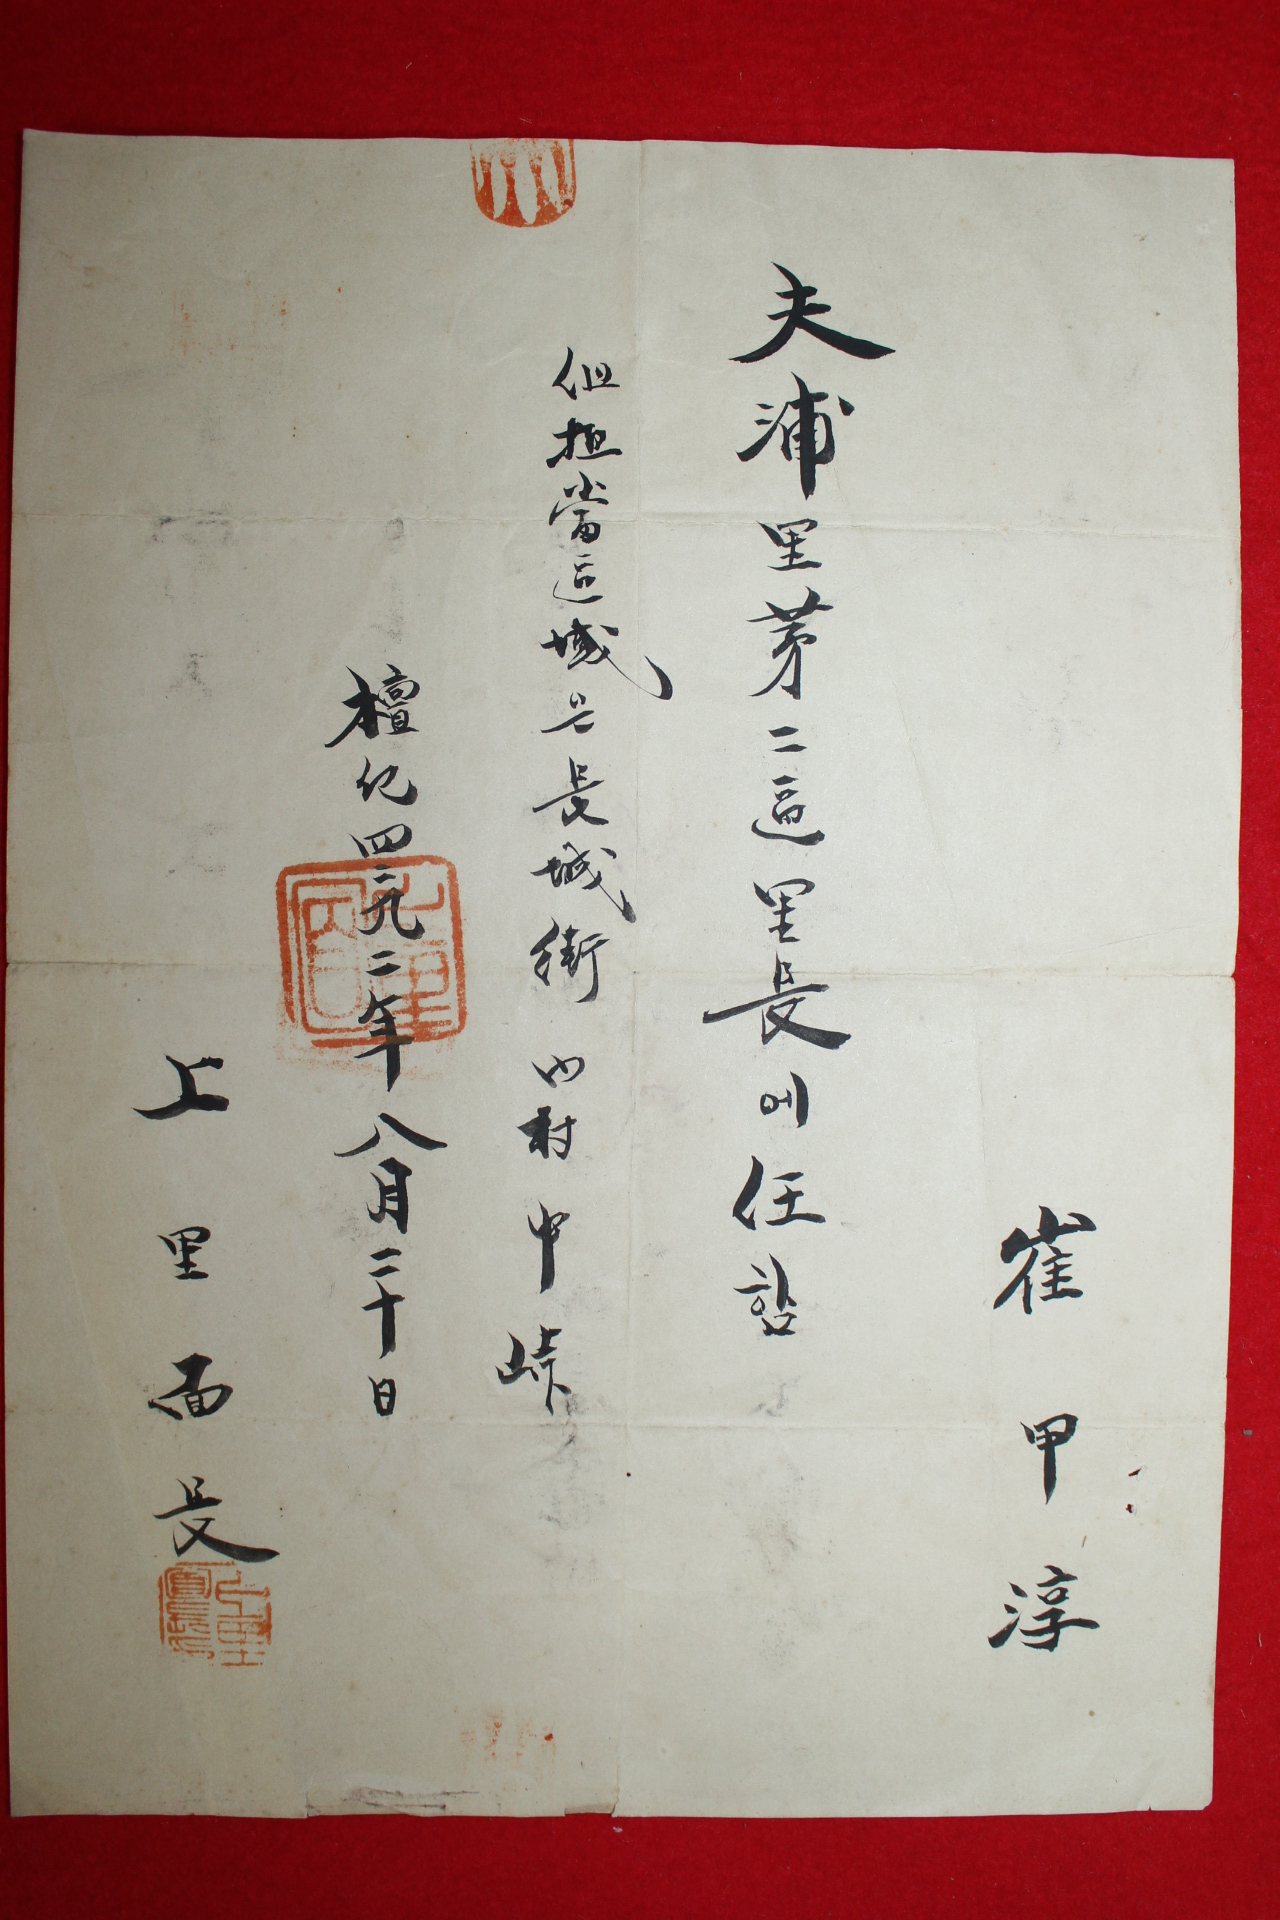 崔甲淳
夫浦里苐二區里長에任함
但担當區域은長城街 内村 中峠
檀紀四二九二年八月二十日
上里面長